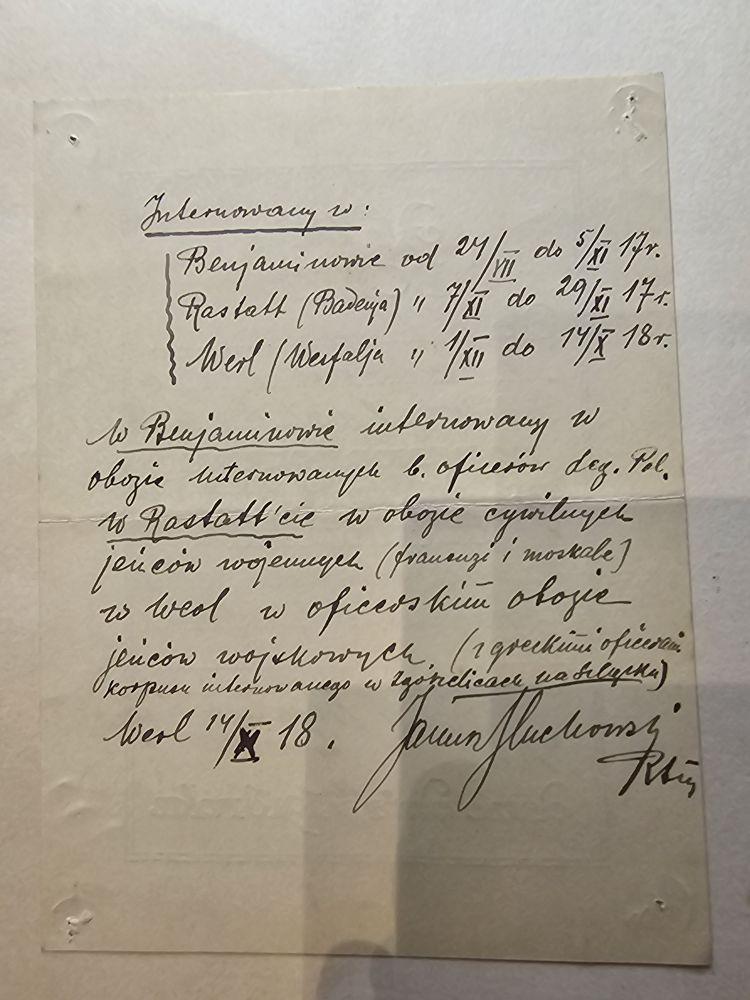 Internowany w:
Benjaminowie od 24/VII do 5/XI 17r.
Rastatt (Badenja) " 7/XI do 29/XI 17r.
Werl (Westfalja " 1/XII do 14/X 18r.
W Benjaminowie internowany w
obozie internowanych b. oficerów Leg. Pol.
w Rastatt'cie w obozie cywilnych
jeńców wojennych (francuzi i moskale)
w Werl w oficerskim obozie
jeńców wojskowych. (z greckimi oficerami
korpusu internowanego w Zgorzelicach na Śląsku)
Werl 14/X 18.
Janusz Głuchowski
Rtm